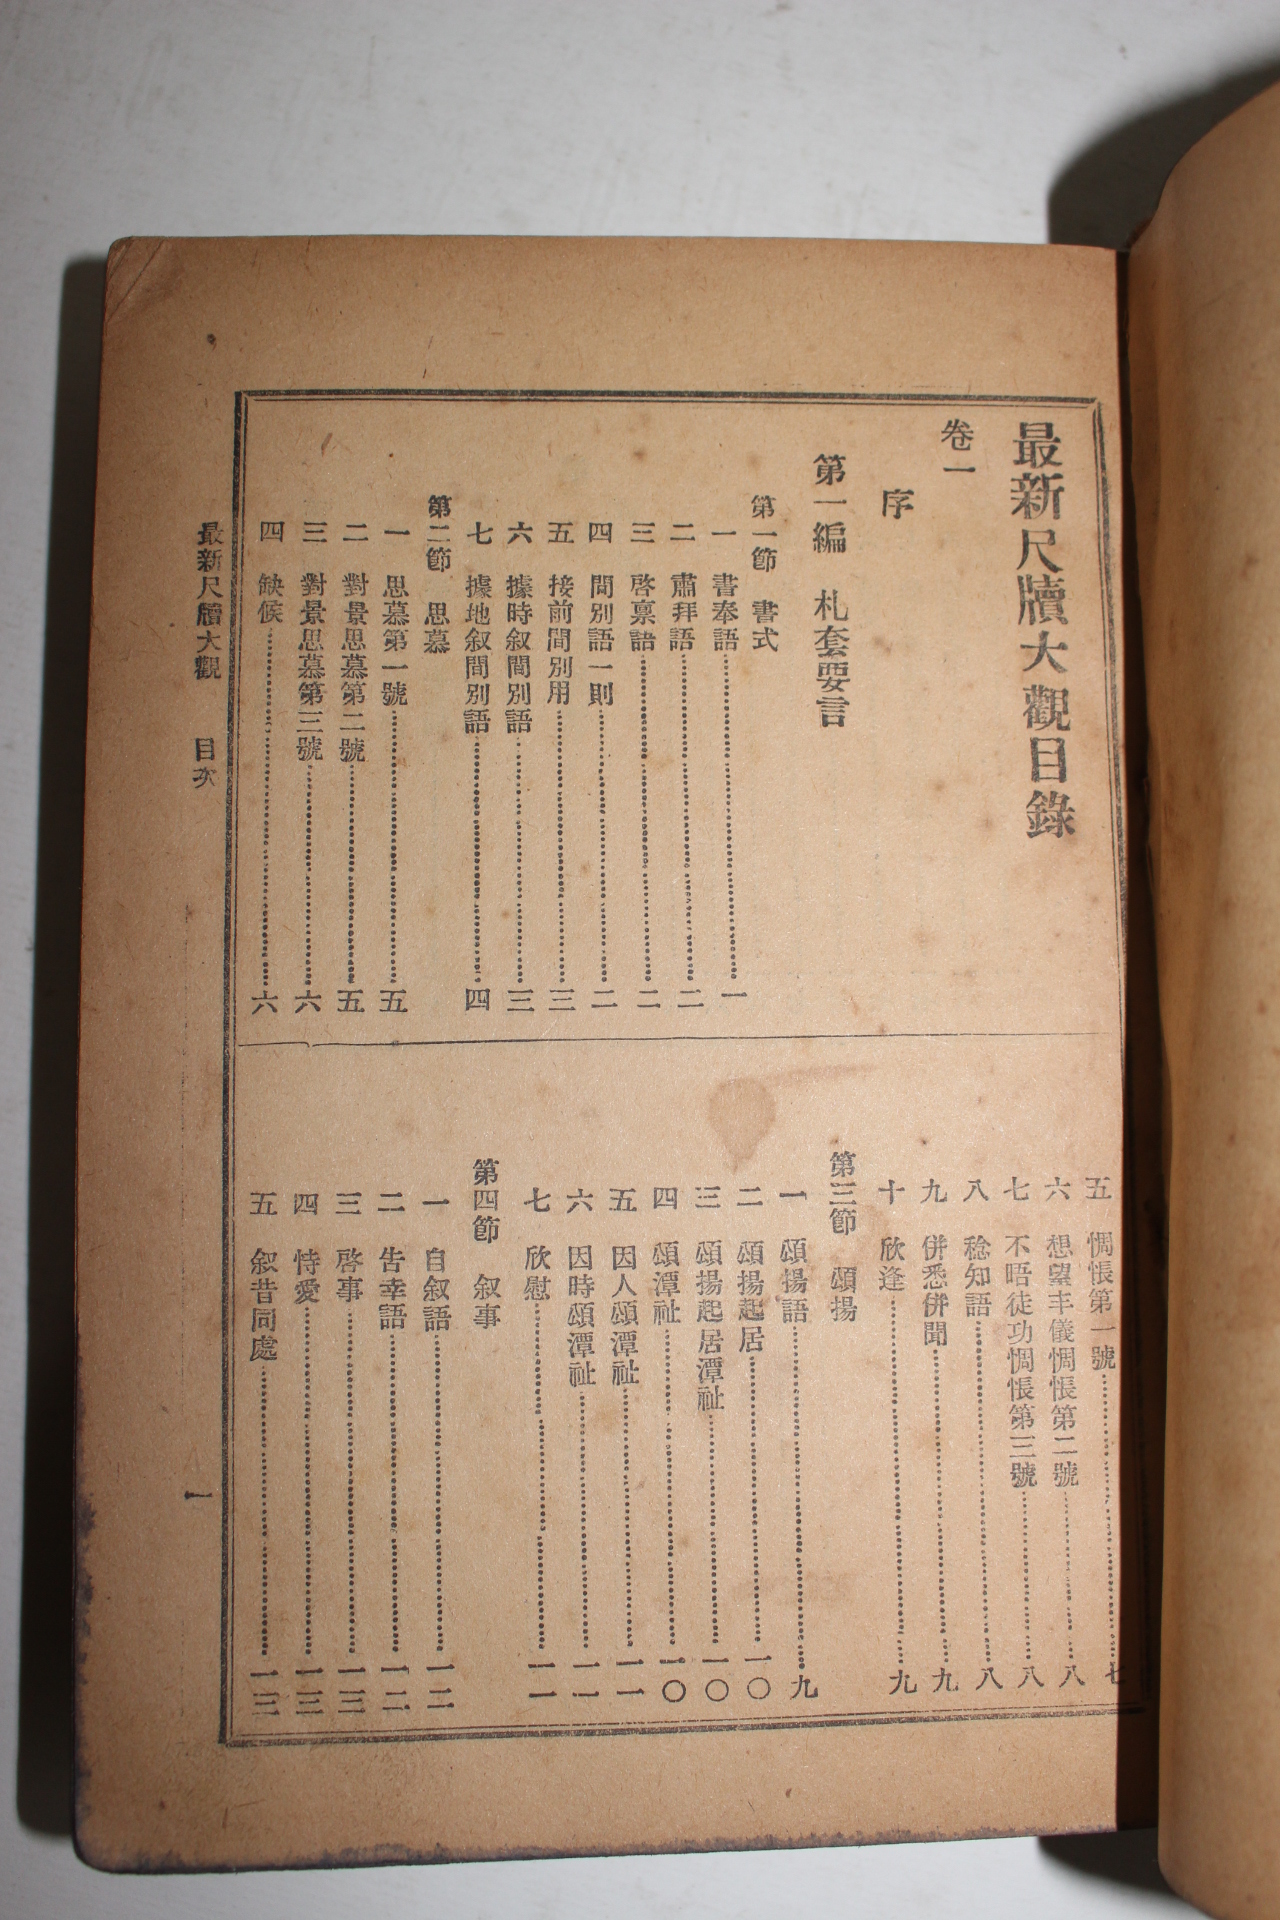 最新尺牘大觀目錄
卷一
序
第一編 札套要言
第一節 書式
一 書奉語……一
二 肅拜語……二
三 啓稟語……二
四 間別語一則……二
五 接前間別用……三
六 據時叙間別語……三
七 據地叙間別語……四
第二節 思慕
一 思慕第一號……五
二 對景思慕第二號……五
三 對景思慕第三號……六
四 缺候……六
五 惆悵第一號……七
六 想望丰儀惆悵第二號……八
七 不晤徒功惆悵第三號……八
八 稔知語……八
九 併悉併聞……九
十 欣逢……九
第三節 頌揚
一 頌揚語……九
二 頌揚起居……一〇
三 頌揚起居潭祉……一〇
四 頌潭祉……一〇
五 因人頌潭祉……一一
六 因時頌潭祉……一一
七 欣慰……一一
第四節 叙事
一 自叙語……一二
二 告幸語……一二
三 啓事……一三
四 恃愛……一三
五 叙昔同處……一三
最新尺牘大觀 目次
一